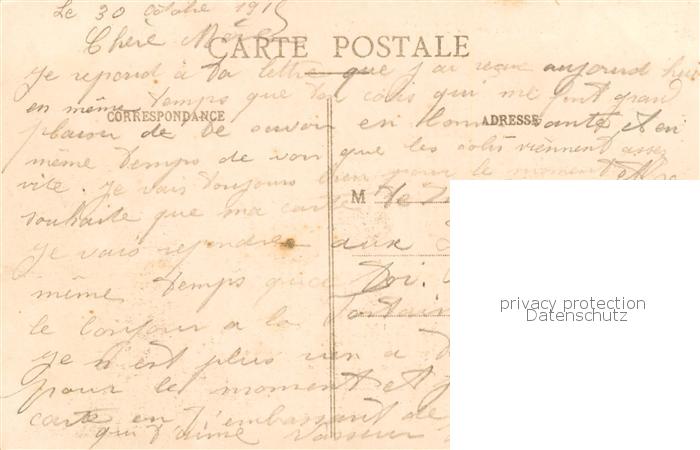 Le 30 Octobre 1915
Chère Mère
CARTE POSTALE
Je repond à ta lettre que j'ai recue aujourd hui
en même temps que ton colis qui me font grand
CORRESPONDANCE
ADRESSE
plaisir de te savoir en bonne santé et en
même temps de voir que les colis viennent assez
vite. Je vais toujours bien pour le moment et
M
souhaite que ma carte de
Je vais repondre aux
même temps que toi.
le bonjour a la
Je n'est plus rien a
pour le moment et
carte en t'embrassant de
qui t'aime Vasseur
privacy protection
Datenschutz